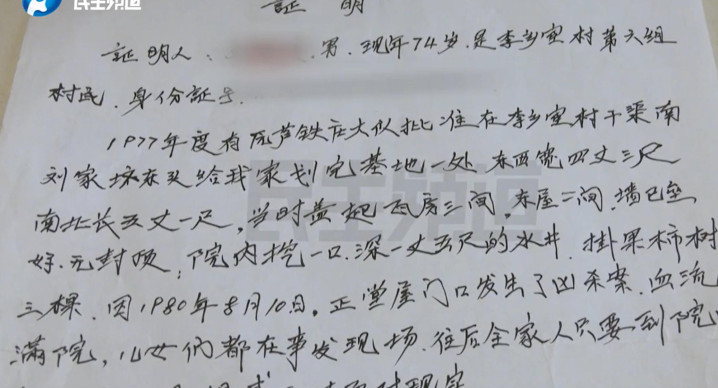 民生频道
証 明
証明人: 男. 现年74岁. 是李乡宦村第六组
村民. 身份証号.
1977年度有原芦铁庄大队批准在李乡宦村干渠南
刘家坟东头给我家划宅基地一处 东西宽四丈三尺
南北长五丈一尺, 当时盖起瓦房三间, 东屋二间, 墙已垒
好. 无封顶, 院内挖一口. 深一丈五尺的水井. 挂果柿树
三棵. 因1980年8月10日. 正堂屋门口发生了凶杀案. 血流
满院, 儿女们都在事发现场. 往后全家人只要到院
民生频道